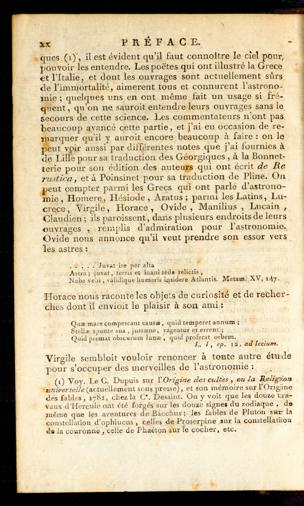 xx PRÉFACE.
ques (1), il est évident qu'il faut connoître le ciel pour
pouvoir les entendre. Les poëtes qui ont illustré la Grece
et l'Italie, et dont les ouvrages sont actuellement sûrs
de l'immortalité, aimerent tous et connurent l'astrono-
mie ; quelques uns en ont même fait un usage si fré-
quent, qu'on ne sauroit entendre leurs ouvrages sans le
secours de cette science. Les commentateurs n'ont pas
beaucoup avancé cette partie, et j'ai eu occasion de re-
marquer qu'il y auroit encore beaucoup à faire : on le
peut voir aussi par différentes notes que j'ai fournies à
de Lille pour sa traduction des Géorgiques, à la Bonnet-
terie pour son édition des auteurs qui ont écrit de Re
rustica, et à Poinsinet pour sa traduction de Pline. On
peut compter parmi les Grecs qui ont parlé d'astrono-
mie, Homere, Hésiode, Aratus ; parmi les Latins, Lu-
crece, Virgile, Horace, Ovide, Manilius, Lucain,
Claudien ; ils paroissent, dans plusieurs endroits de leurs
ouvrages, remplis d'admiration pour l'astronomie.
Ovide nous annonce qu'il veut prendre son essor vers
les astres :
. . . . . Juvat ire per alta
Astra ; juvat, terris et inani sede relictis,
Nube vehi, validique humeris insidere Atlantis. Metam. XV, 147.
Horace nous raconte les objets de curiosité et de recher-
ches dont il envioit le plaisir à son ami :
Quæ mare compescant causæ, quid temperet annum ;
Stellæ sponte sua, jussæne, vagentur et errent ;
Quid premat obscurum lunæ, quid proferat orbem.
L. I, ep. 12. ad Iccium.
Virgile sembloit vouloir renoncer à toute autre étude
pour s'occuper des merveilles de l'astronomie :
(1) Voy. Le C. Dupuis sur l'Origine des cultes, ou la Religion
universelle (actuellement sous presse), et son mémoire sur l'Origine
des fables, 1781, chez la Cᵉ. Desaint. On y voit que les douze tra-
vaux d'Hercule ont été forgés sur les douze signes du zodiaque, de
même que les aventures de Bacchus ; les fables de Pluton sur la
constellation d'ophiucus, celles de Proserpine sur la constellation
de la couronne, celle de Phaéton sur le cocher, etc.